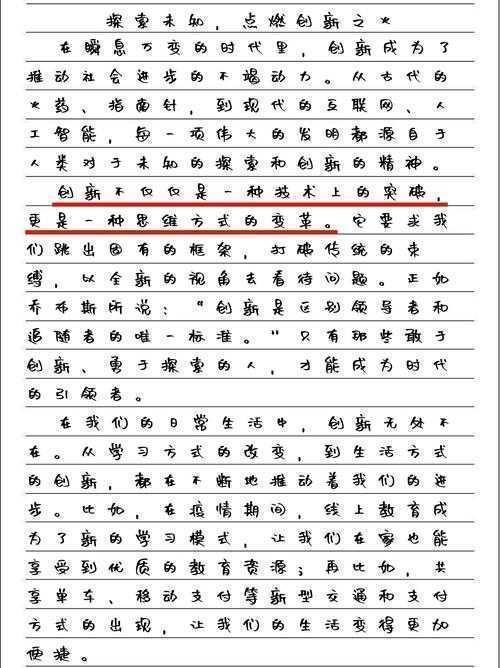 探索未知，点燃创新之火
在瞬息万变的时代里，创新成为了
推动社会进步的不竭动力。从古代的
火药、指南针，到现代的互联网、人
工智能，每一项伟大的发明都源自于
人类对于未知的探索和创新的精神。
创新不仅仅是一种技术上的突破，
更是一种思维方式的变革。它要求我
们跳出固有的框架，打破传统的束
缚，以全新的视角去看待问题。正如
乔布斯所说：“创新是区别领导者和
追随者的唯一标准。”只有那些敢于
创新、勇于探索的人，才能成为时代
的引领者。
在我们的日常生活中，创新无处不
在。从学习方式的改变，到生活方式
的创新，都在不断地推动着我们的进
步。比如，在疫情期间，线上教育成
为了新的学习模式，让我们在家也能
享受到优质的教育资源；再比如，共
享单车、移动支付等新型交通和支付
方式的出现，让我们的生活变得更加
便捷。